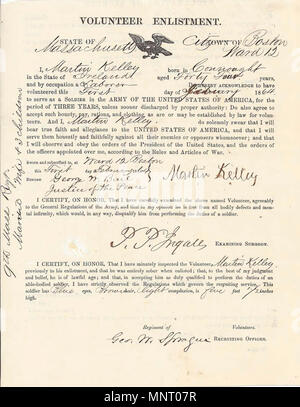 VOLUNTEER ENLISTMENT.
STATE OF
Massachusetts
City TOWN OF Boston
Ward 12
I, Martin Kelley born in Connought
in the State of Ireland aged Forty Four years,
and by occupation a Laborer Do HEREBY ACKNOWLEDGE to have
volunteered this First day of February 1864
to serve as a Soldier in the ARMY OF THE UNITED STATES OF AMERICA, for the
period of THREE YEARS, unless sooner discharged by proper authority: Do also agree to
accept such bounty, pay, rations, and clothing, as are or may be established by law for volun-
teers. And I, Martin Kelley do solemnly swear that I will
bear true faith and allegiance to the UNITED STATES OF AMERICA, and that I will
serve them honestly and faithfully against all their enemies or opposers whomsoever; and that I
will observe and obey the orders of the President of the United States, and the orders of
the officers appointed over me, according to the Rules and Articles of War.
Sworn and subscribed to, at Ward 12 Boston
this First day of February 1864
BEFORE George W.
Justice of the Peace
Martin Kelley
I CERTIFY, ON HONOR, That I have carefully examined the above named Volunteer, agreeably
to the General Regulations of the Army, and that in my opinion he is free from all bodily defects and men-
tal infirmity, which would, in any way, disqualify him from performing the duties of a soldier.
P. P. Ingalls
EXAMINING SURGEON.
I CERTIFY, ON HONOR, That I have minutely inspected the Volunteer, Martin Kelley
previously to his enlistment, and that he was entirely sober when enlisted; that, to the best of my judgment
and belief, he is of lawful age; and that, in accepting him as duly qualified to perform the duties of an
able-bodied soldier, I have strictly observed the Regulations which govern the recruiting service. This
soldier has Blue eyes, Brown hair, light complexion, is five feet 7 inches
high.
Regiment of Volunteers.
Geo. W. Sprague RECRUITING OFFICER.
9th Mass Regt.
Married Wife & children
alamy
Image ID: MNT07R
www.alamy.com